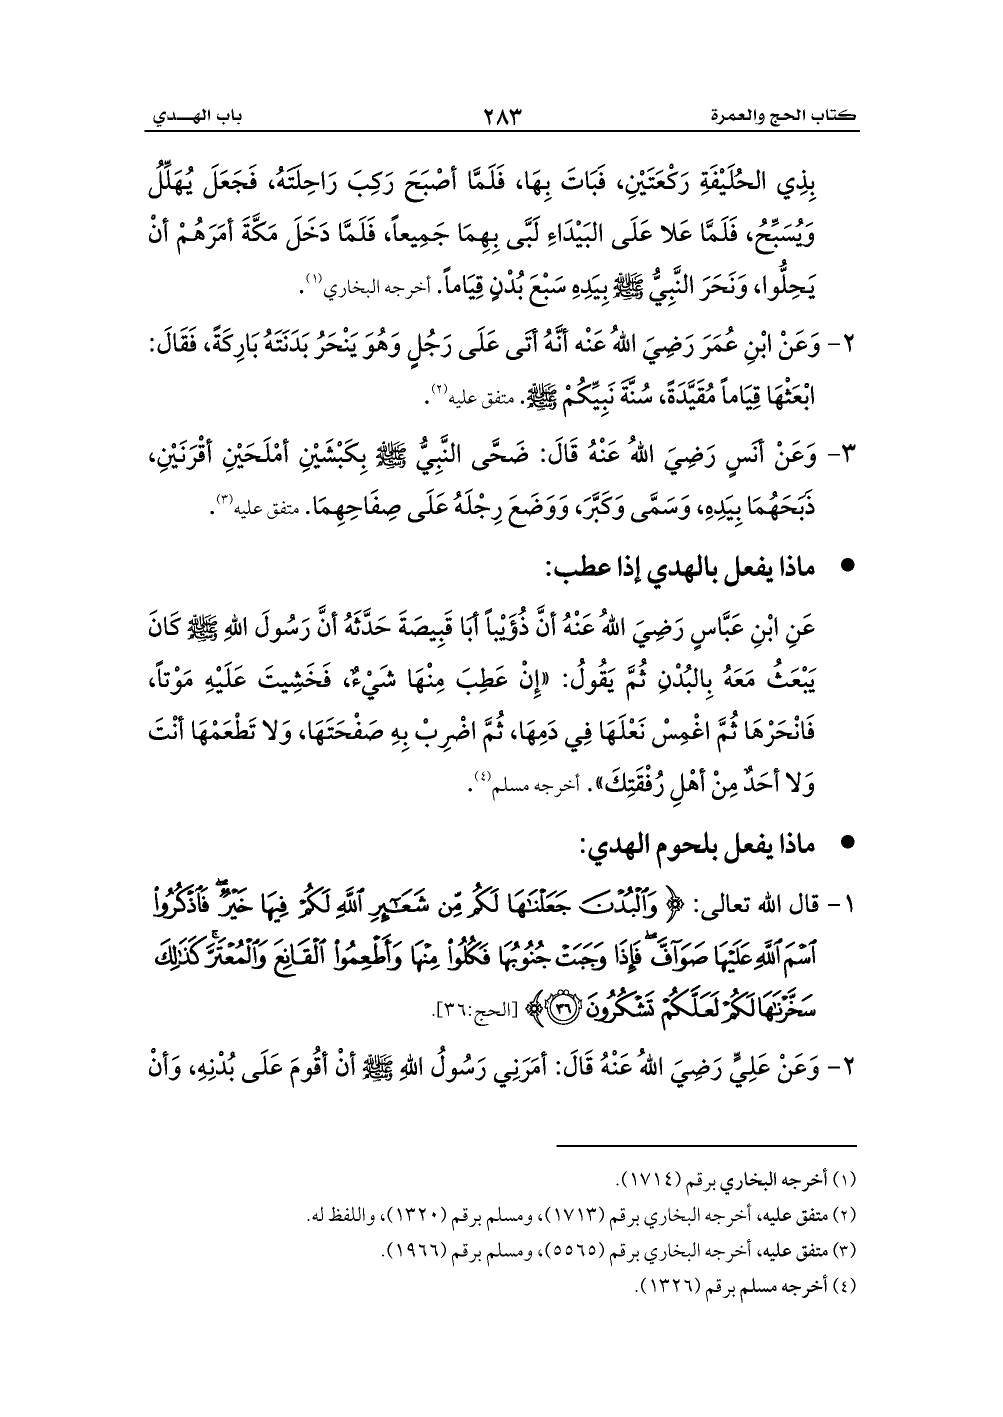 كتاب الحج والعمرة ٢٨٣ باب الهـــدي
بِذِي الحُلَيْفَةِ رَكْعَتَيْنِ، فَبَاتَ بِهَا، فَلَمَّا أصْبَحَ رَكِبَ رَاحِلَتَهُ، فَجَعَلَ يُهَلِّلُ
وَيُسَبِّحُ، فَلَمَّا عَلا عَلَى البَيْدَاءِ لَبَّى بِهِمَا جَمِيعاً، فَلَمَّا دَخَلَ مَكَّةَ أمَرَهُمْ أنْ
يَحِلُّوا، وَنَحَرَ النَّبِيُّ ﷺ بِيَدِهِ سَبْعَ بُدْنٍ قِيَاماً. أخرجه البخاري(١).
٢- وَعَنْ ابْنِ عُمَرَ رَضِيَ اللهُ عَنْه أنَّهُ أتَى عَلَى رَجُلٍ وَهُوَ يَنْحَرُ بَدَنَتَهُ بَارِكَةً، فَقَالَ:
ابْعَثْهَا قِيَاماً مُقَيَّدَةً، سُنَّةَ نَبِيِّكُمْ ﷺ. متفق عليه(٢).
٣- وَعَنْ أنَسٍ رَضِيَ اللهُ عَنْهُ قَالَ: ضَحَّى النَّبِيُّ ﷺ بِكَبْشَيْنِ أمْلَحَيْنِ أقْرَنَيْنِ،
ذَبَحَهُمَا بِيَدِهِ، وَسَمَّى وَكَبَّرَ، وَوَضَعَ رِجْلَهُ عَلَى صِفَاحِهِمَا. متفق عليه(٣).
● ماذا يفعل بالهدي إذا عطب:
عَنِ ابْنِ عَبَّاسٍ رَضِيَ اللهُ عَنْهُ أنَّ ذُؤَيْباً أبَا قَبِيصَةَ حَدَّثَهُ أنَّ رَسُولَ اللهِ ﷺ كَانَ
يَبْعَثُ مَعَهُ بِالبُدْنِ ثُمَّ يَقُولُ: «إنْ عَطِبَ مِنْهَا شَيْءٌ، فَخَشِيتَ عَلَيْهِ مَوْتاً،
فَانْحَرْهَا ثُمَّ اغْمِسْ نَعْلَهَا فِي دَمِهَا، ثُمَّ اضْرِبْ بِهِ صَفْحَتَهَا، وَلا تَطْعَمْهَا أنْتَ
وَلا أحَدٌ مِنْ أهْلِ رُفْقَتِكَ». أخرجه مسلم(٤).
● ماذا يفعل بلحوم الهدي:
١- قال الله تعالى: ﴿ وَٱلْبُدْنَ جَعَلْنَٰهَا لَكُم مِّن شَعَٰٓئِرِ ٱللَّهِ لَكُمْ فِيهَا خَيْرٌ ۖ فَٱذْكُرُوا۟
ٱسْمَ ٱللَّهِ عَلَيْهَا صَوَآفَّ ۖ فَإِذَا وَجَبَتْ جُنُوبُهَا فَكُلُوا۟ مِنْهَا وَأَطْعِمُوا۟ ٱلْقَانِعَ وَٱلْمُعْتَرَّ ۚ كَذَٰلِكَ
سَخَّرْنَٰهَا لَكُمْ لَعَلَّكُمْ تَشْكُرُونَ ٣٦ ﴾ [الحج:٣٦].
٢- وَعَنْ عَلِيٍّ رَضِيَ اللهُ عَنْهُ قَالَ: أمَرَنِي رَسُولُ اللهِ ﷺ أنْ أقُومَ عَلَى بُدْنِهِ، وَأنْ
(١) أخرجه البخاري برقم (١٧١٤).
(٢) متفق عليه، أخرجه البخاري برقم (١٧١٣)، ومسلم برقم (١٣٢٠)، واللفظ له.
(٣) متفق عليه، أخرجه البخاري برقم (٥٥٦٥)، ومسلم برقم (١٩٦٦).
(٤) أخرجه مسلم برقم (١٣٢٦).